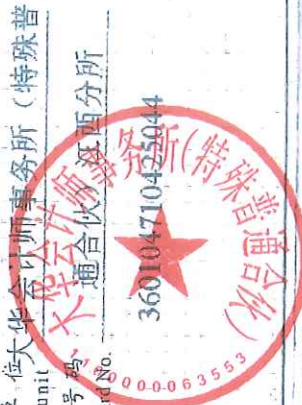 位大华会计师事务所（特殊普
unit
通合伙）江西分所
号码
rd No.
360104710425044
大华会计师事务所(特殊普通合伙)
1100000063553